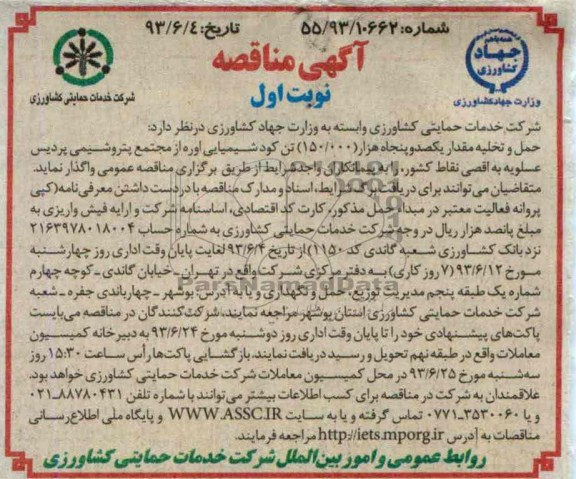 شماره: ۵۵/۹۳/۱۰۶۶۲
تاریخ: ۹۳/۶/۴
همه با هم
جهاد
کشاورزی
وزارت جهاد کشاورزی
آگهی مناقصه
نوبت اول
شرکت خدمات حمایتی کشاورزی
شرکت خدمات حمایتی کشاورزی وابسته به وزارت جهاد کشاورزی درنظر دارد:
حمل و تخلیه مقدار یکصدو پنجاه هزار (۱۵۰/۰۰۰) تن کود شیمیایی اوره از مجتمع پتروشیمی پردیس
عسلویه به اقصی نقاط کشور، را به پیمانکاران واجدشرایط از طریق برگزاری مناقصه عمومی واگذار نماید.
متقاضیان می‌توانند برای دریافت شرایط، اسناد و مدارک مناقصه با دردست داشتن معرفی‌نامه (کپی
پروانه فعالیت معتبر در مبدأ حمل مذکور، کارت کد اقتصادی، اساسنامه شرکت و ارایه فیش واریزی به
مبلغ پانصد هزار ریال در وجه شرکت خدمات حمایتی کشاورزی به شماره حساب ۲۱۶۳۹۷۸۰۱۸۰۰۴
نزد بانک کشاورزی شعبه گاندی کد ۱۱۵۰) از تاریخ ۹۳/۶/۴ لغایت پایان وقت اداری روز چهارشنبه
مورخ ۹۳/۶/۱۲ (۷ روز کاری) به دفتر مرکزی شرکت واقع در تهران ـ خیابان گاندی ـ کوچه چهارم
شماره یک طبقه پنجم مدیریت توزیع، حمل و نگهداری و یا به آدرس: بوشهر ـ چهارباندی جفره ـ شعبه
شرکت خدمات حمایتی کشاورزی استان بوشهر مراجعه نمایند. شرکت‌کنندگان در مناقصه می‌بایست
پاکت‌های پیشنهادی خود را تا پایان وقت اداری روز دوشنبه مورخ ۹۳/۶/۲۴ به دبیرخانه کمیسیون
معاملات واقع در طبقه نهم تحویل و رسید دریافت نمایند. بازگشایی پاکت‌ها رأس ساعت ۱۵:۳۰ روز
سه‌شنبه مورخ ۹۳/۶/۲۵ در محل کمیسیون معاملات شرکت خدمات حمایتی کشاورزی خواهد بود.
علاقمندان به شرکت در مناقصه برای کسب اطلاعات بیشتر می‌توانند با شماره تلفن ۸۸۷۸۰۴۳۱-۰۲۱
و یا ۳۵۳۰۰۶۰-۰۷۷۱ تماس گرفته و یا به سایت WWW.ASSC.IR و پایگاه ملی اطلاع‌رسانی
مناقصات به آدرس http://iets.mporg.ir مراجعه فرمایند.
روابط عمومی و امور بین‌الملل شرکت خدمات حمایتی کشاورزی
ParsNamadData